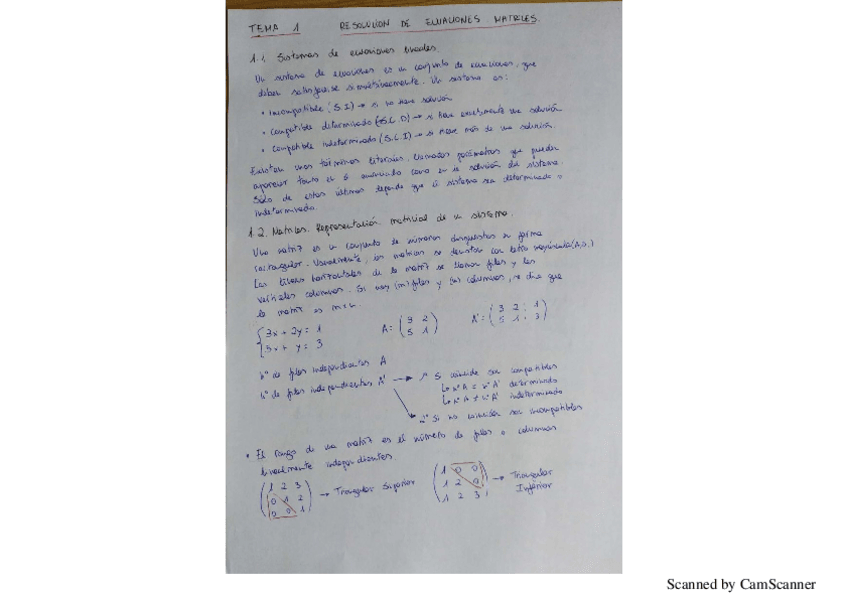 TEMA 1 RESOLUCIÓN DE ECUACIONES MATRICES.
1.1. Sistemas de ecuaciones lineales.
Un sistema de ecuaciones es un conjunto de ecuaciones, que
deben satisfacerse simultáneamente. Un sistema es:
• Incompatible (S.I) → si no tiene solución
• Compatible determinado (S.C.D) → si tiene exactamente una solución
• Compatible indeterminado (S.C.I) → si tiene más de una solución.
Existen unos términos literales, llamados parámetros que pueden
aparecer tanto en el enunciado como en la solución del sistema.
Sólo de estos últimos depende que el sistema sea determinado o
indeterminado.
1.2. Matrices. Representación matricial de un sistema.
Una matriz es un conjunto de números dispuestos en forma
rectangular. Usualmente, las matrices se denotan con letra mayúscula (A,B,)
Las líneas horizontales de la matriz se llaman filas y las
verticales columnas. Si hay (m) filas y (n) columnas, se dice que
la matriz es m×n.
{3x + 2y = 1 A: (3 2 A': (3 2 : 1
{5x + y = 3 5 1) 5 1 : 3)
nº de filas independientes A
nº de filas independientes A' → 1º Si coincide son compatibles
↳ nº A = nº A' determinado
↳ nº A ≠ nº A' indeterminado
2º Si no coinciden son incompatibles
• El rango de una matriz es el número de filas o columnas
linealmente independientes.
(1 2 3 (1 0 0
0 1 2 → Triangular Superior 1 2 0 → Triangular
0 0 1) 1 2 3) Inferior
Scanned by CamScanner